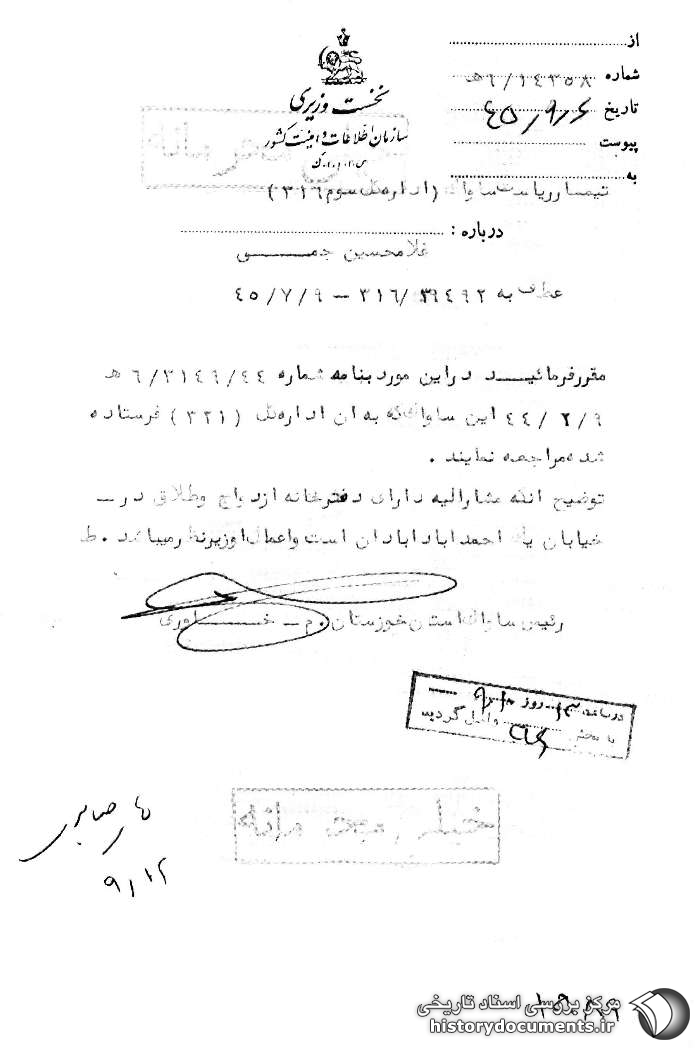 از
شماره ۶/۱۴۳۵۸هـ
تاریخ ۴۵/۹/۶
پیوست
به
نخست وزیری
سازمان اطلاعات و امنیت کشور
س.ا.و.ا.ک
تیمسار ریاست ساواک (اداره کل سوم ۳۱۶)
درباره :
غلامحسین جمـــی
عطف به ۳۱۶/۳۹۴۹۲ – ۴۵/۷/۹
مقرر فرمائیـــد در این مورد بنامه شماره ۶/۳۱۴۶/۴۴ هـ
۴۴/۲/۹ این ساواک که به آن اداره کل (۳۲۱) فرستاده
شده مراجعه نمایند .
توضیح آنکه مشارالیه دارای دفترخانه ازدواج و طلاق در –
خیابان یک احمدآباد آبادان است و اعمال او زیرنظر میباشد . ط
رئیس ساواک استان خوزستان . م – خـــاوری
روز
وارد گردید
خیلی محرمانه
۹/۱۲
مرکز بررسی اسناد تاریخی
historydocuments.ir